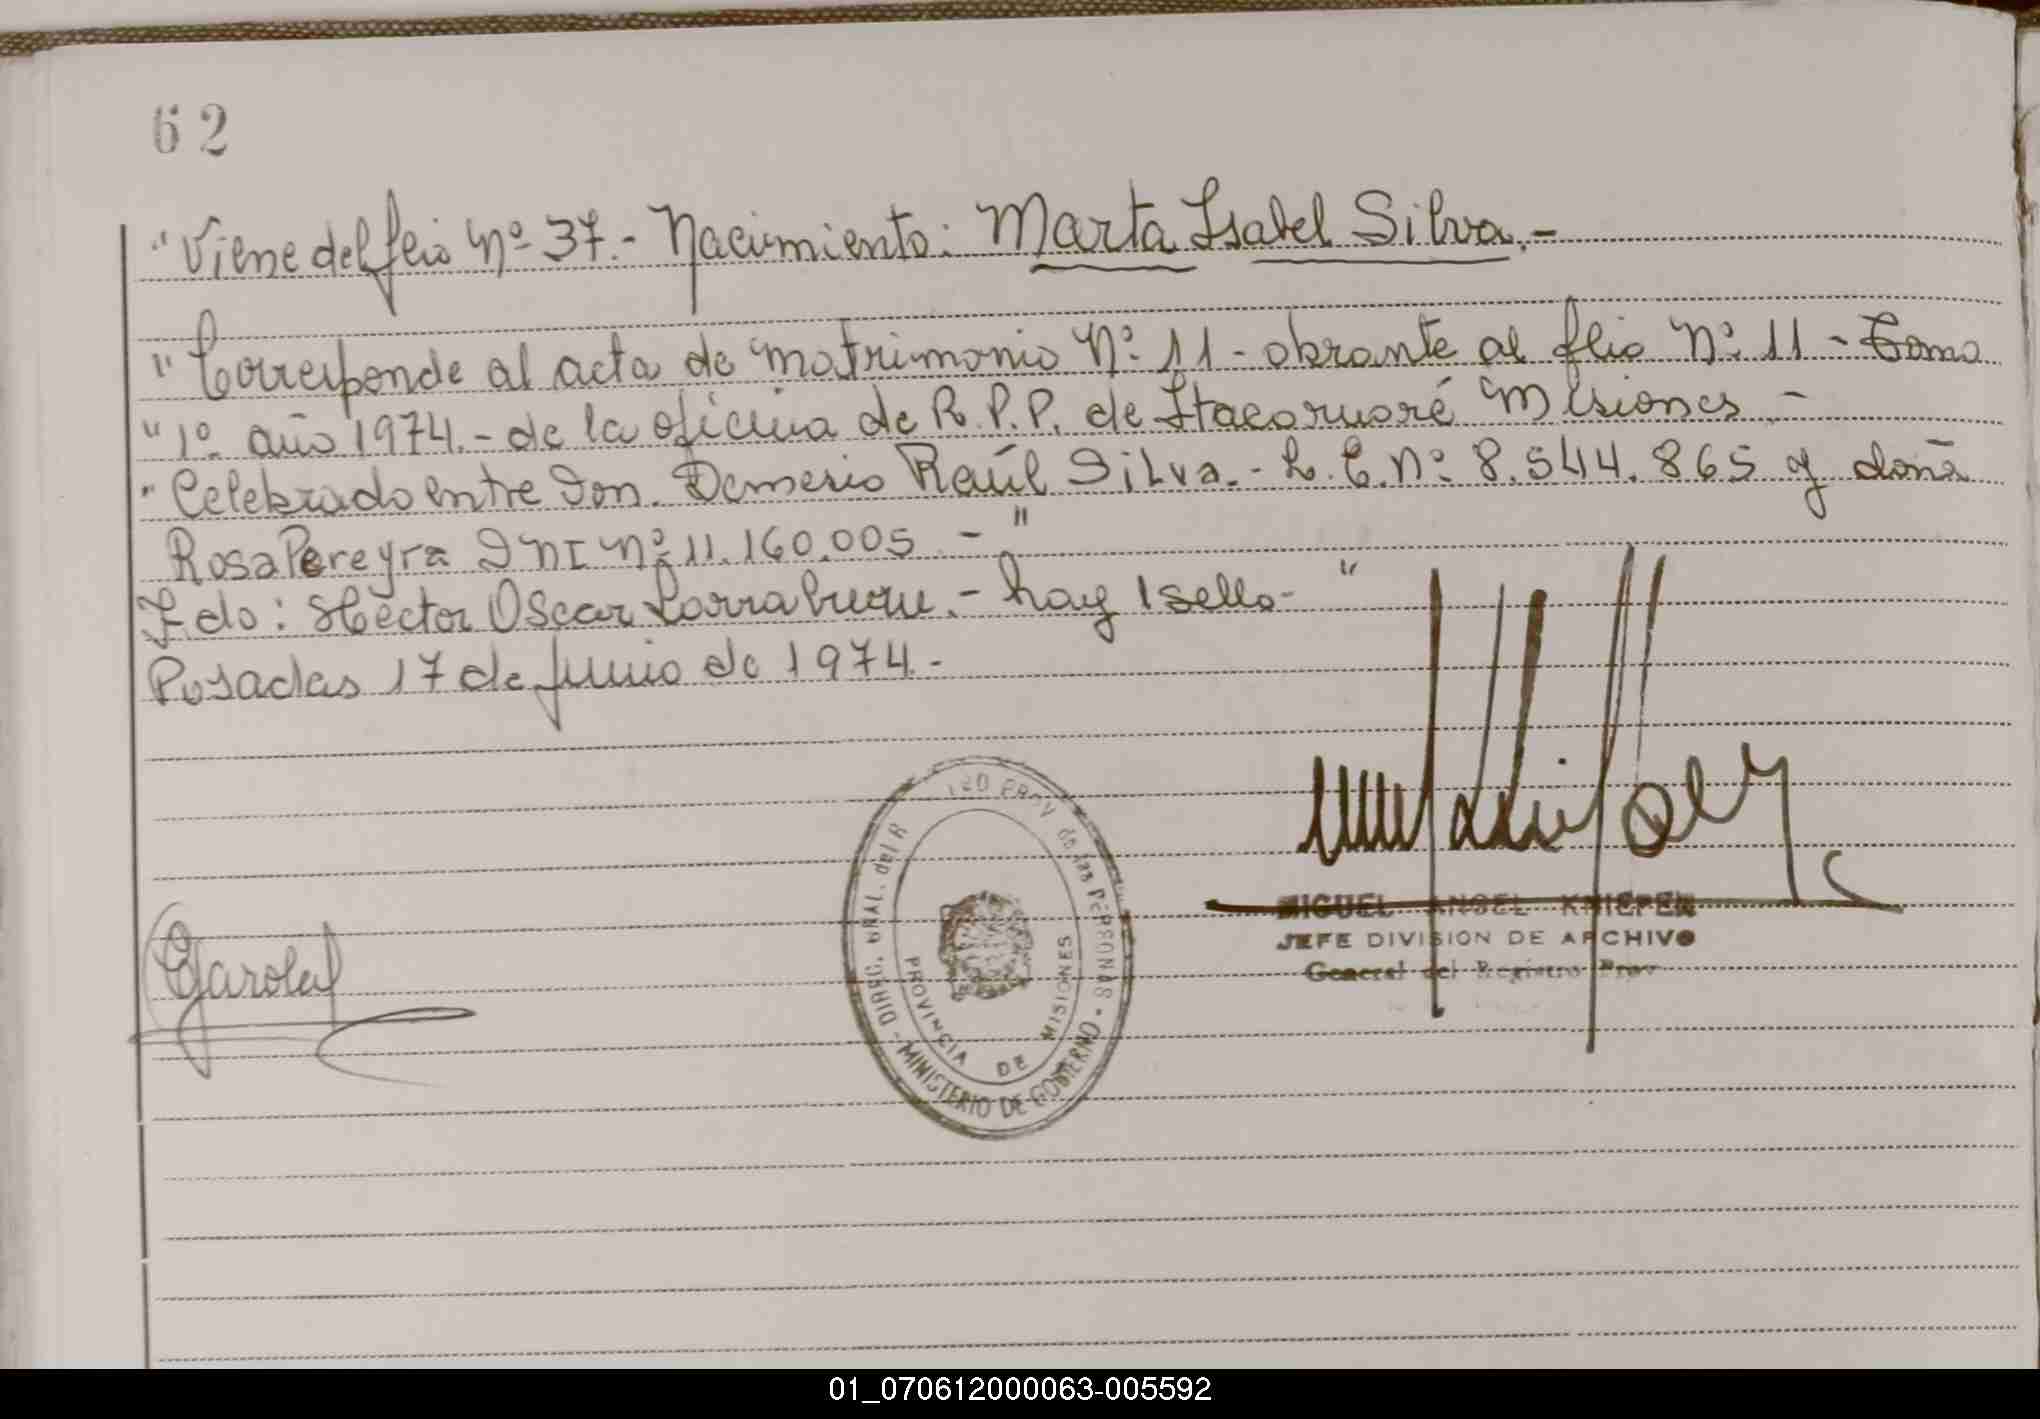 62
"Viene del flio Nº 37.- Nacimiento: Marta Isabel Silva.-
"Corresponde al acta de matrimonio Nº 11 - obrante al flio Nº 11 - Tomo
"1º año 1974.- de la oficina de R.P.P. de Itacaruaré Misiones -
"Celebrado entre Don. Demesio Raúl Silva.- L.E. Nº 8.544.865 y doña
Rosa Pereyra DNI Nº 11.160.005 - "
Fdo: Héctor Oscar Larraburu.- hay 1 sello- "
Posadas 17 de Junio de 1974.-
DIREC. GRAL. del R PROV de las PERSONAS - MINISTERIO DE GOBIERNO -
PROVINCIA DE MISIONES
MIGUEL ANGEL KNIEPEN
JEFE DIVISION DE ARCHIVO
General del Registro Prov
01_070612000063-005592